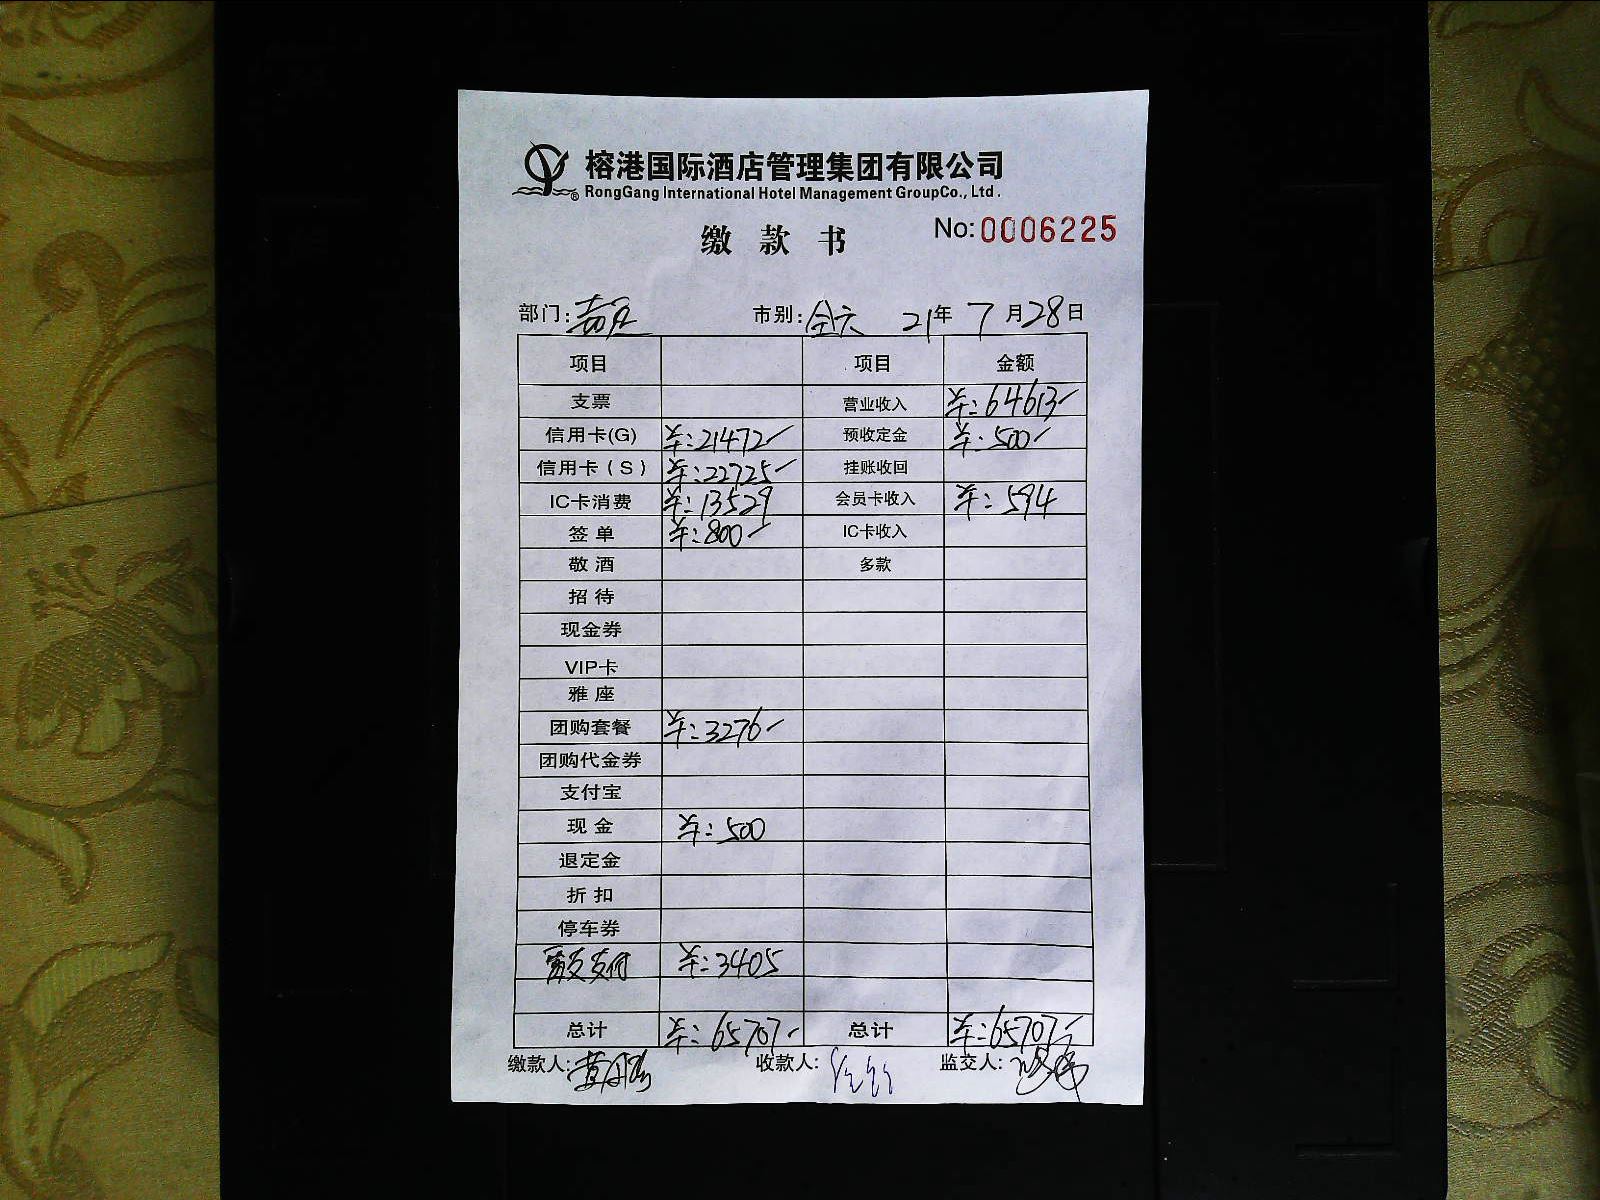 榕港国际酒店管理集团有限公司
® RongGang International Hotel Management GroupCo., Ltd.
缴款书 No:0006225
部门: 市别: 21年 7月28日
项目 项目 金额
支票 营业收入 64613
信用卡(G) 21472 预收定金 500
信用卡(S) 22725 挂账收回
IC卡消费 13529 会员卡收入 594
签单 800 IC卡收入
敬酒 多款
招待
现金券
VIP卡
雅座
团购套餐 3276
团购代金券
支付宝
现金 500
退定金
折扣
停车券
支付 3405
总计 65707 总计 65707
缴款人: 收款人: 监交人: